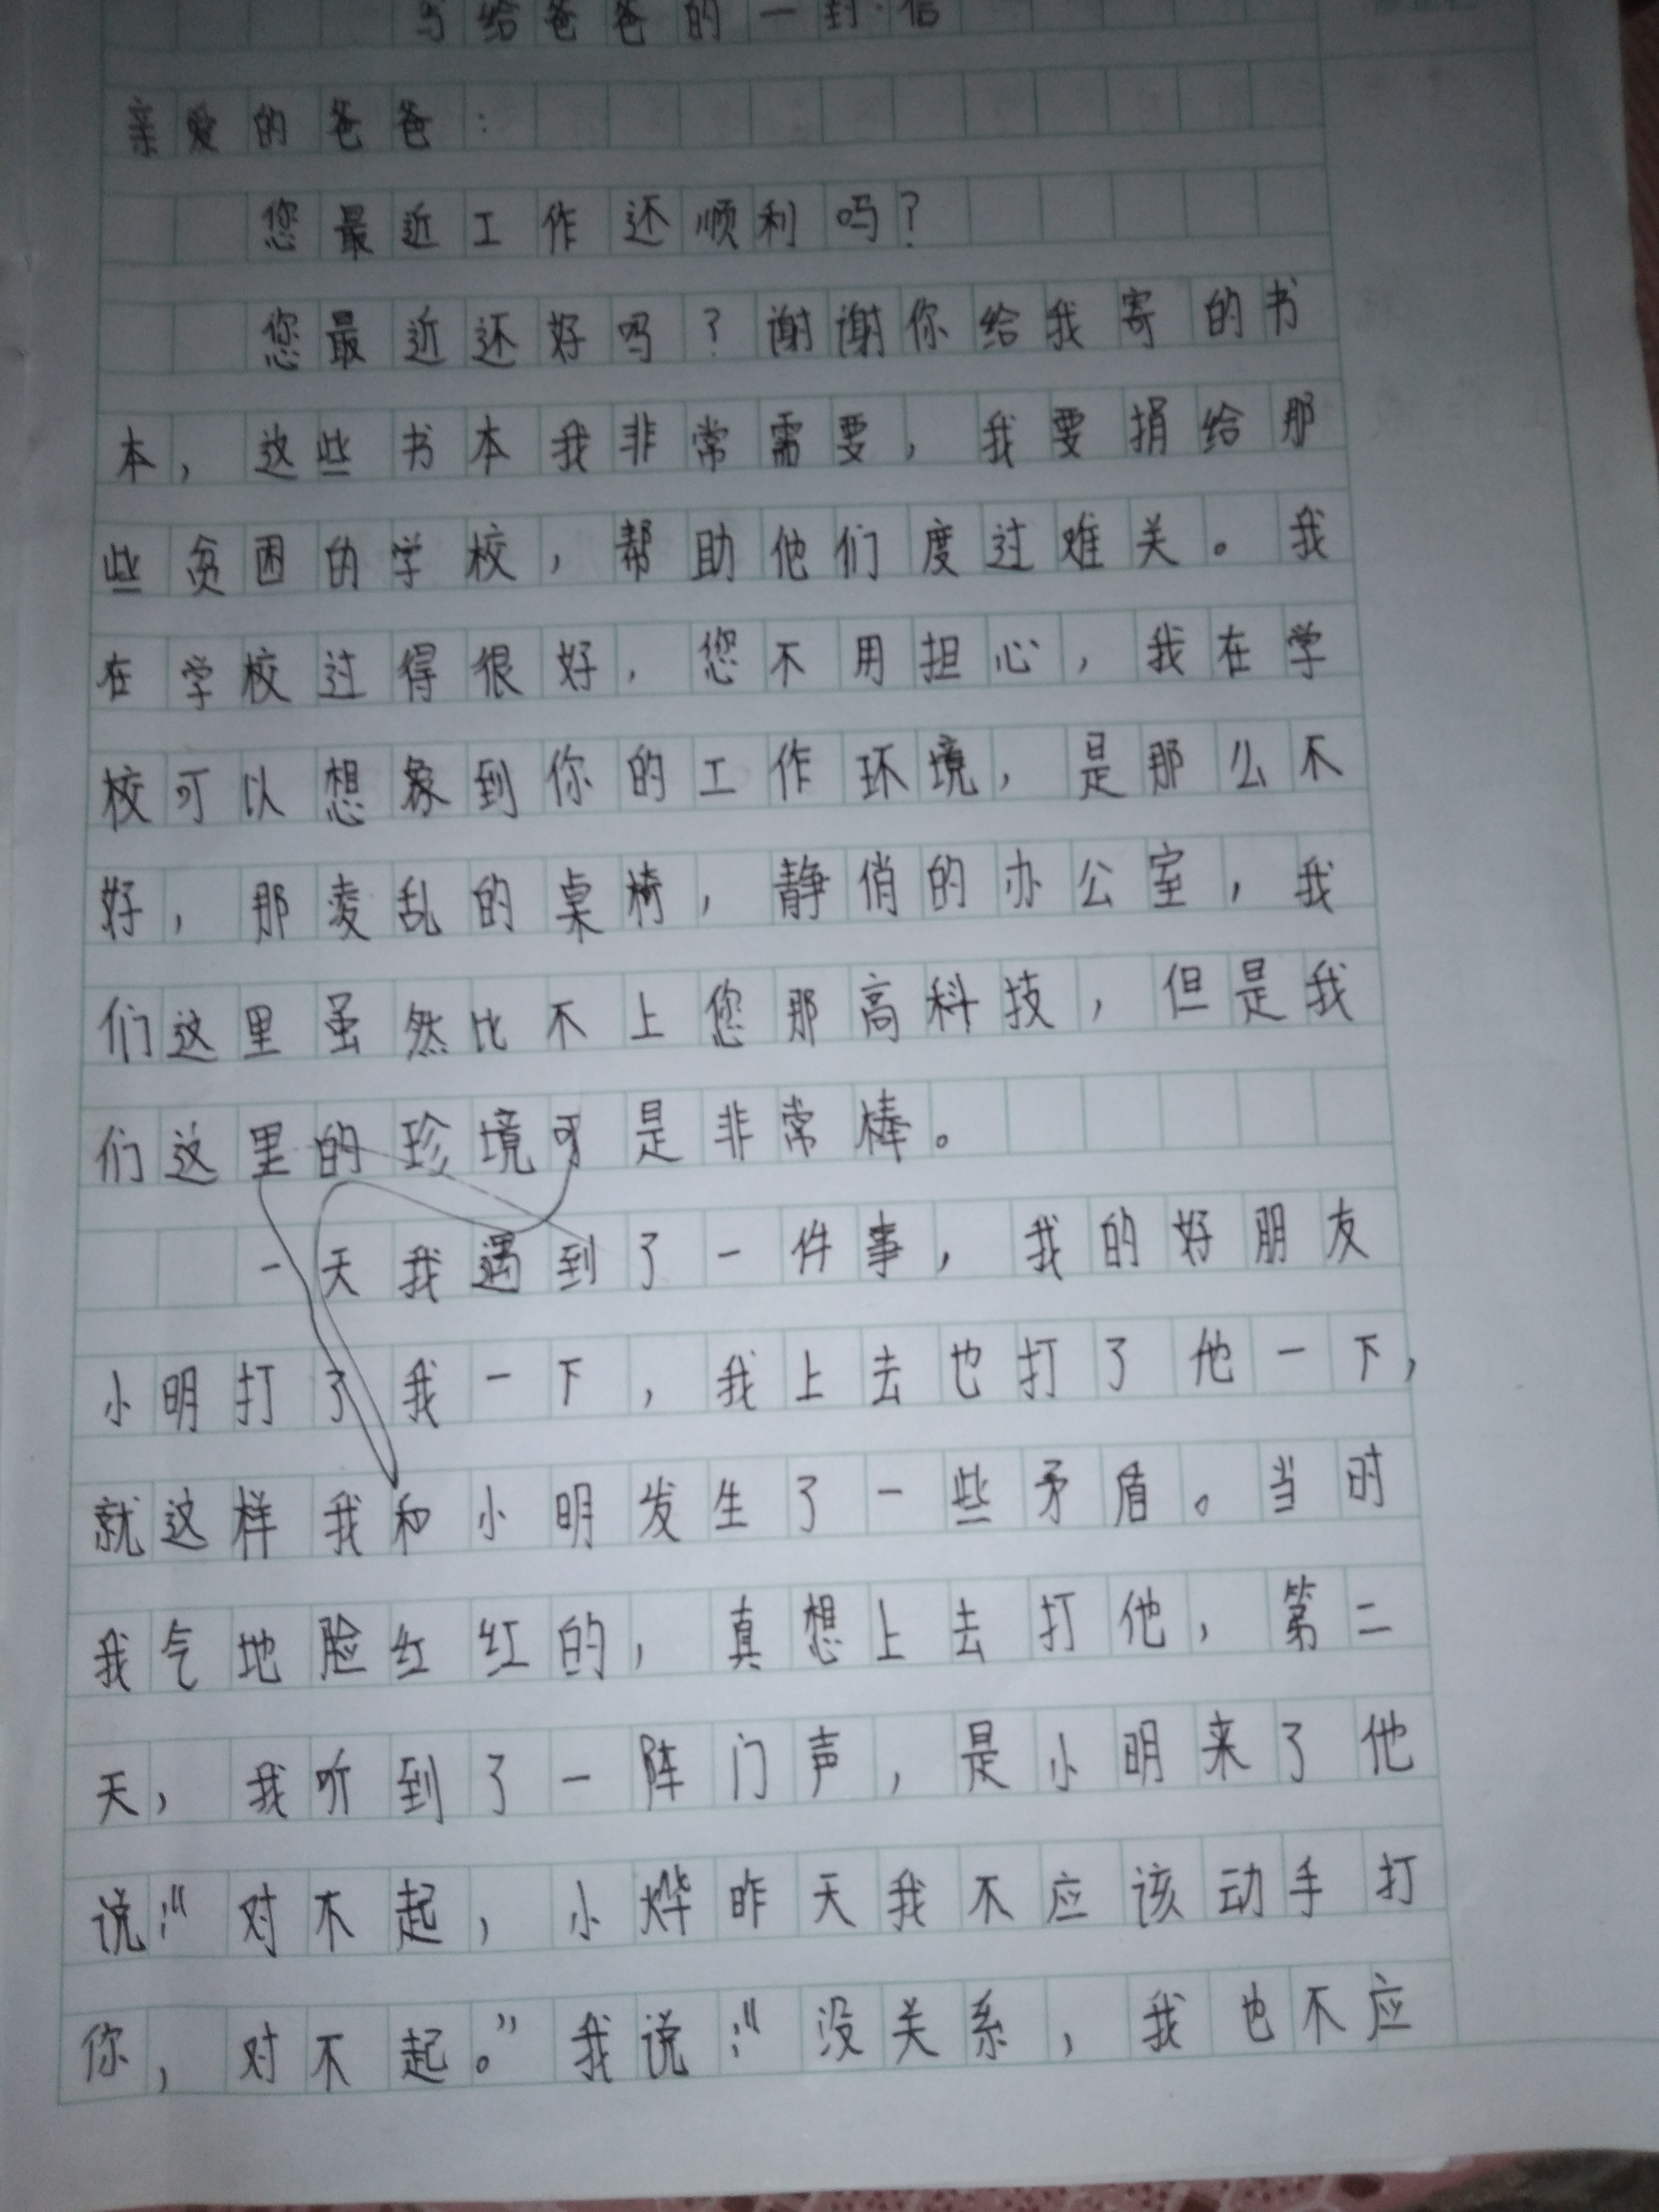 写给爸爸的一封信
亲爱的爸爸：
您最近工作还顺利吗？
您最近还好吗？谢谢你给我寄的书
本，这些书本我非常需要，我要捐给那
些贫困的学校，帮助他们度过难关。我
在学校过得很好，您不用担心，我在学
校可以想象到你的工作环境，是那么不
好，那凌乱的桌椅，静俏的办公室，我
们这里虽然比不上您那高科技，但是我
们这里的环境可是非常棒。
一天我遇到了一件事，我的好朋友
小明打了我一下，我上去也打了他一下，
就这样我和小明发生了一些矛盾。当时
我气地脸红红的，真想上去打他，第二
天，我听到了一阵门声，是小明来了他
说：“对不起，小烨昨天我不应该动手打
你，对不起。”我说：“没关系，我也不应